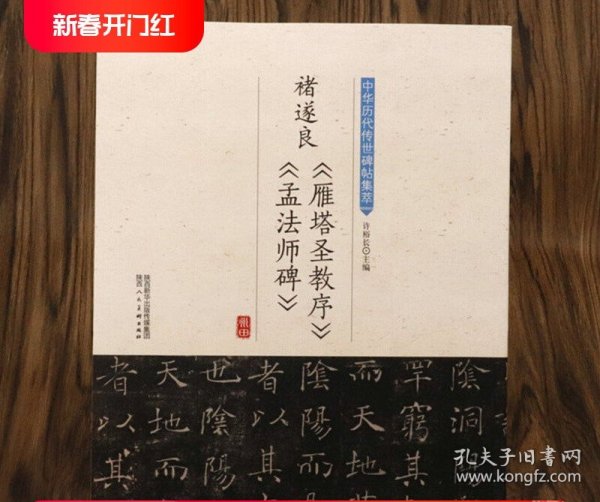 新春开门红
中华历代传世碑帖集萃
许裕长⊙主编
褚遂良
《雁塔圣教序》
《孟法师碑》
陕西新华出版传媒集团
陕西人民美术出版社
陰洞
罕窮
而天地
陰陽而
者以其
也陰陽
天地而
者以其
孔夫子旧书网
www.kongfz.com